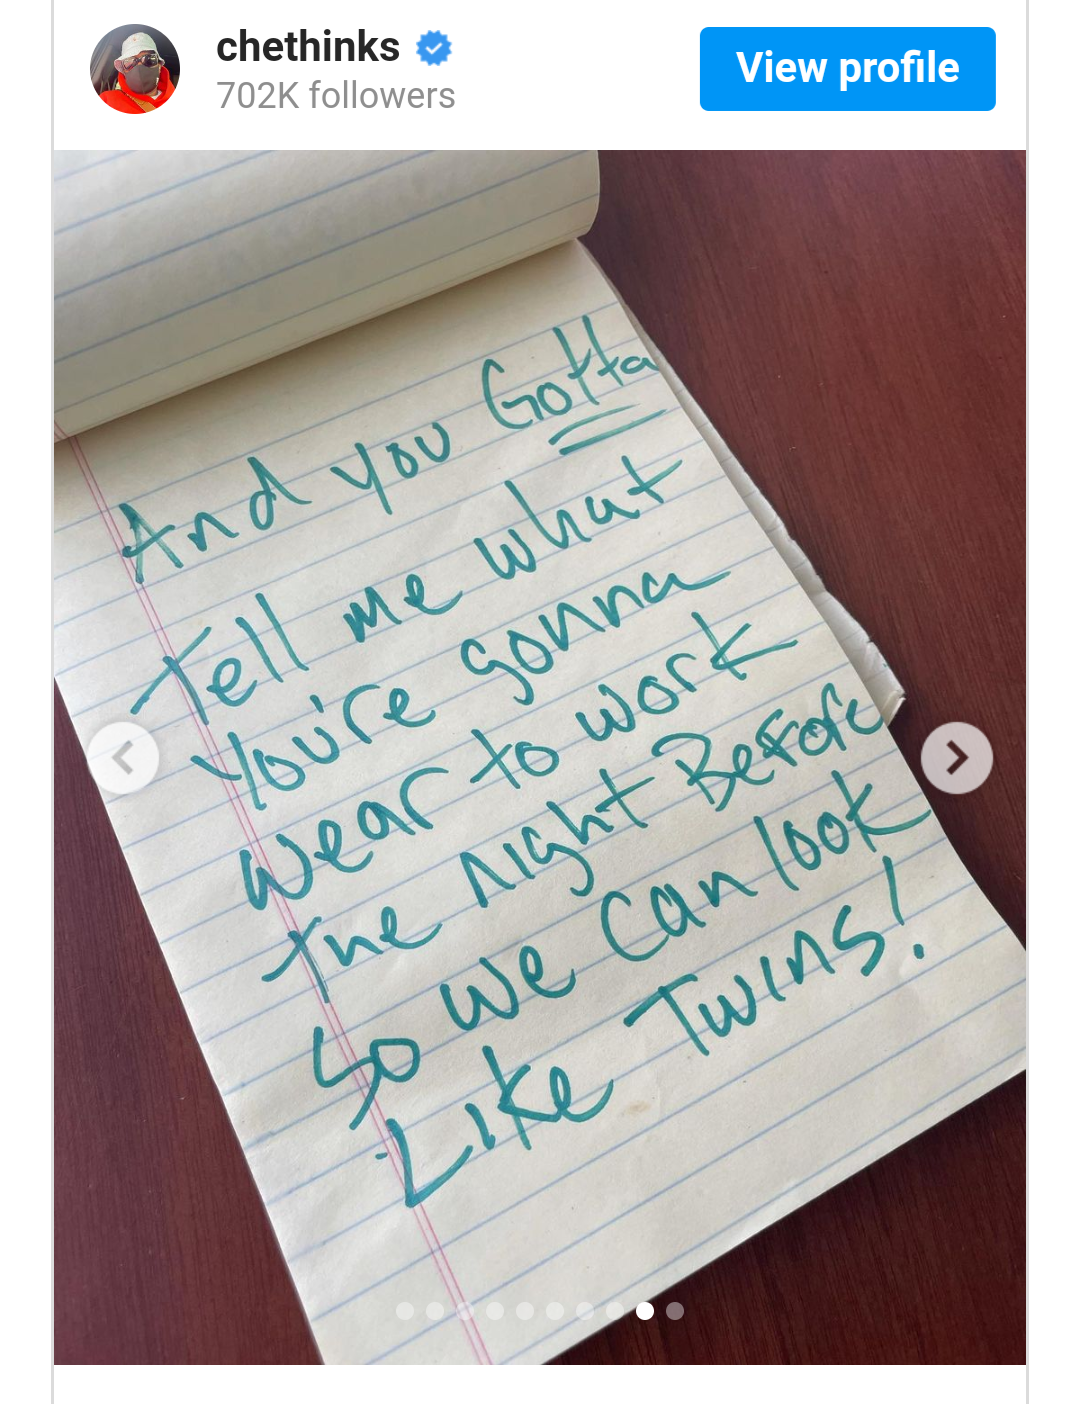 chethinks
702K followers
View profile
And you Gotta
Tell me what
you're gonna
wear to work
the night Before
so we can look
Like Twins!